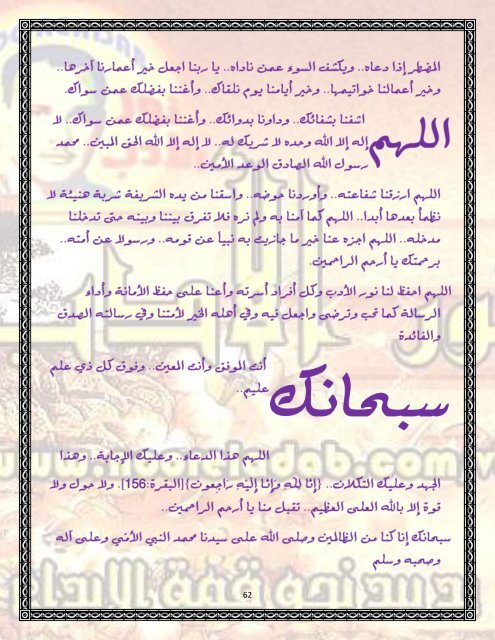 المضطر إذا دعاه.. ويكشف السوء عمن ناداه.. يا ربنا اجعل خير أعمارنا آخرها..
وخير أعمالنا خواتيمها.. وخير أيامنا يوم نلقاك.. وأغننا بفضلك عمن سواك.
اللهم
اشفنا بشفائك.. وداونا بدوائك.. وأغننا بفضلك عمن سواك.. لا
إله إلا الله وحده لا شريك له.. لا إله إلا الله الحق المبين.. محمد
رسول الله الصادق الوعد الأمين..
اللهم ارزقنا شفاعته.. وأوردنا حوضه.. واسقنا من يده الشريفة شربة هنيئة لا
نظمأ بعدها أبدا.. اللهم كما آمنا به ولم نره فلا تفرق بيننا وبينه حتى تدخلنا
مدخله.. اللهم اجزه عنا خير ما جازيت به نبيأ عن قومه.. ورسولا عن أمته..
برحمتك يا أرحم الراحمين.
اللهم احفظ لنا نور الأدب وكل أفراد أسرته وأعنا على حفظ الأمانة وأداء
الرسالة كما تحب وترضى واجعل فيه وفي أهله الخير لأمتنا وفي رسالته الصدق
والفائدة
سبحانك
أنت الموفق وأنت المعين.. وفوق كل ذي علم
عليم..
اللهم هذا الدعاء.. وعليك الإجابة.. وهذا
الجهد وعليك التكلان.. {إنا لله وإنا إليه راجعون}[البقرة:156]. ولا حول ولا
قوة إلا بالله العلى العظيم.. تقبل منا يا أرحم الراحمين..
سبحانك إنا كنا من الظالمين وصلى الله على سيدنا محمد النبي الأمي وعلى آله
وصحبه وسلم
62